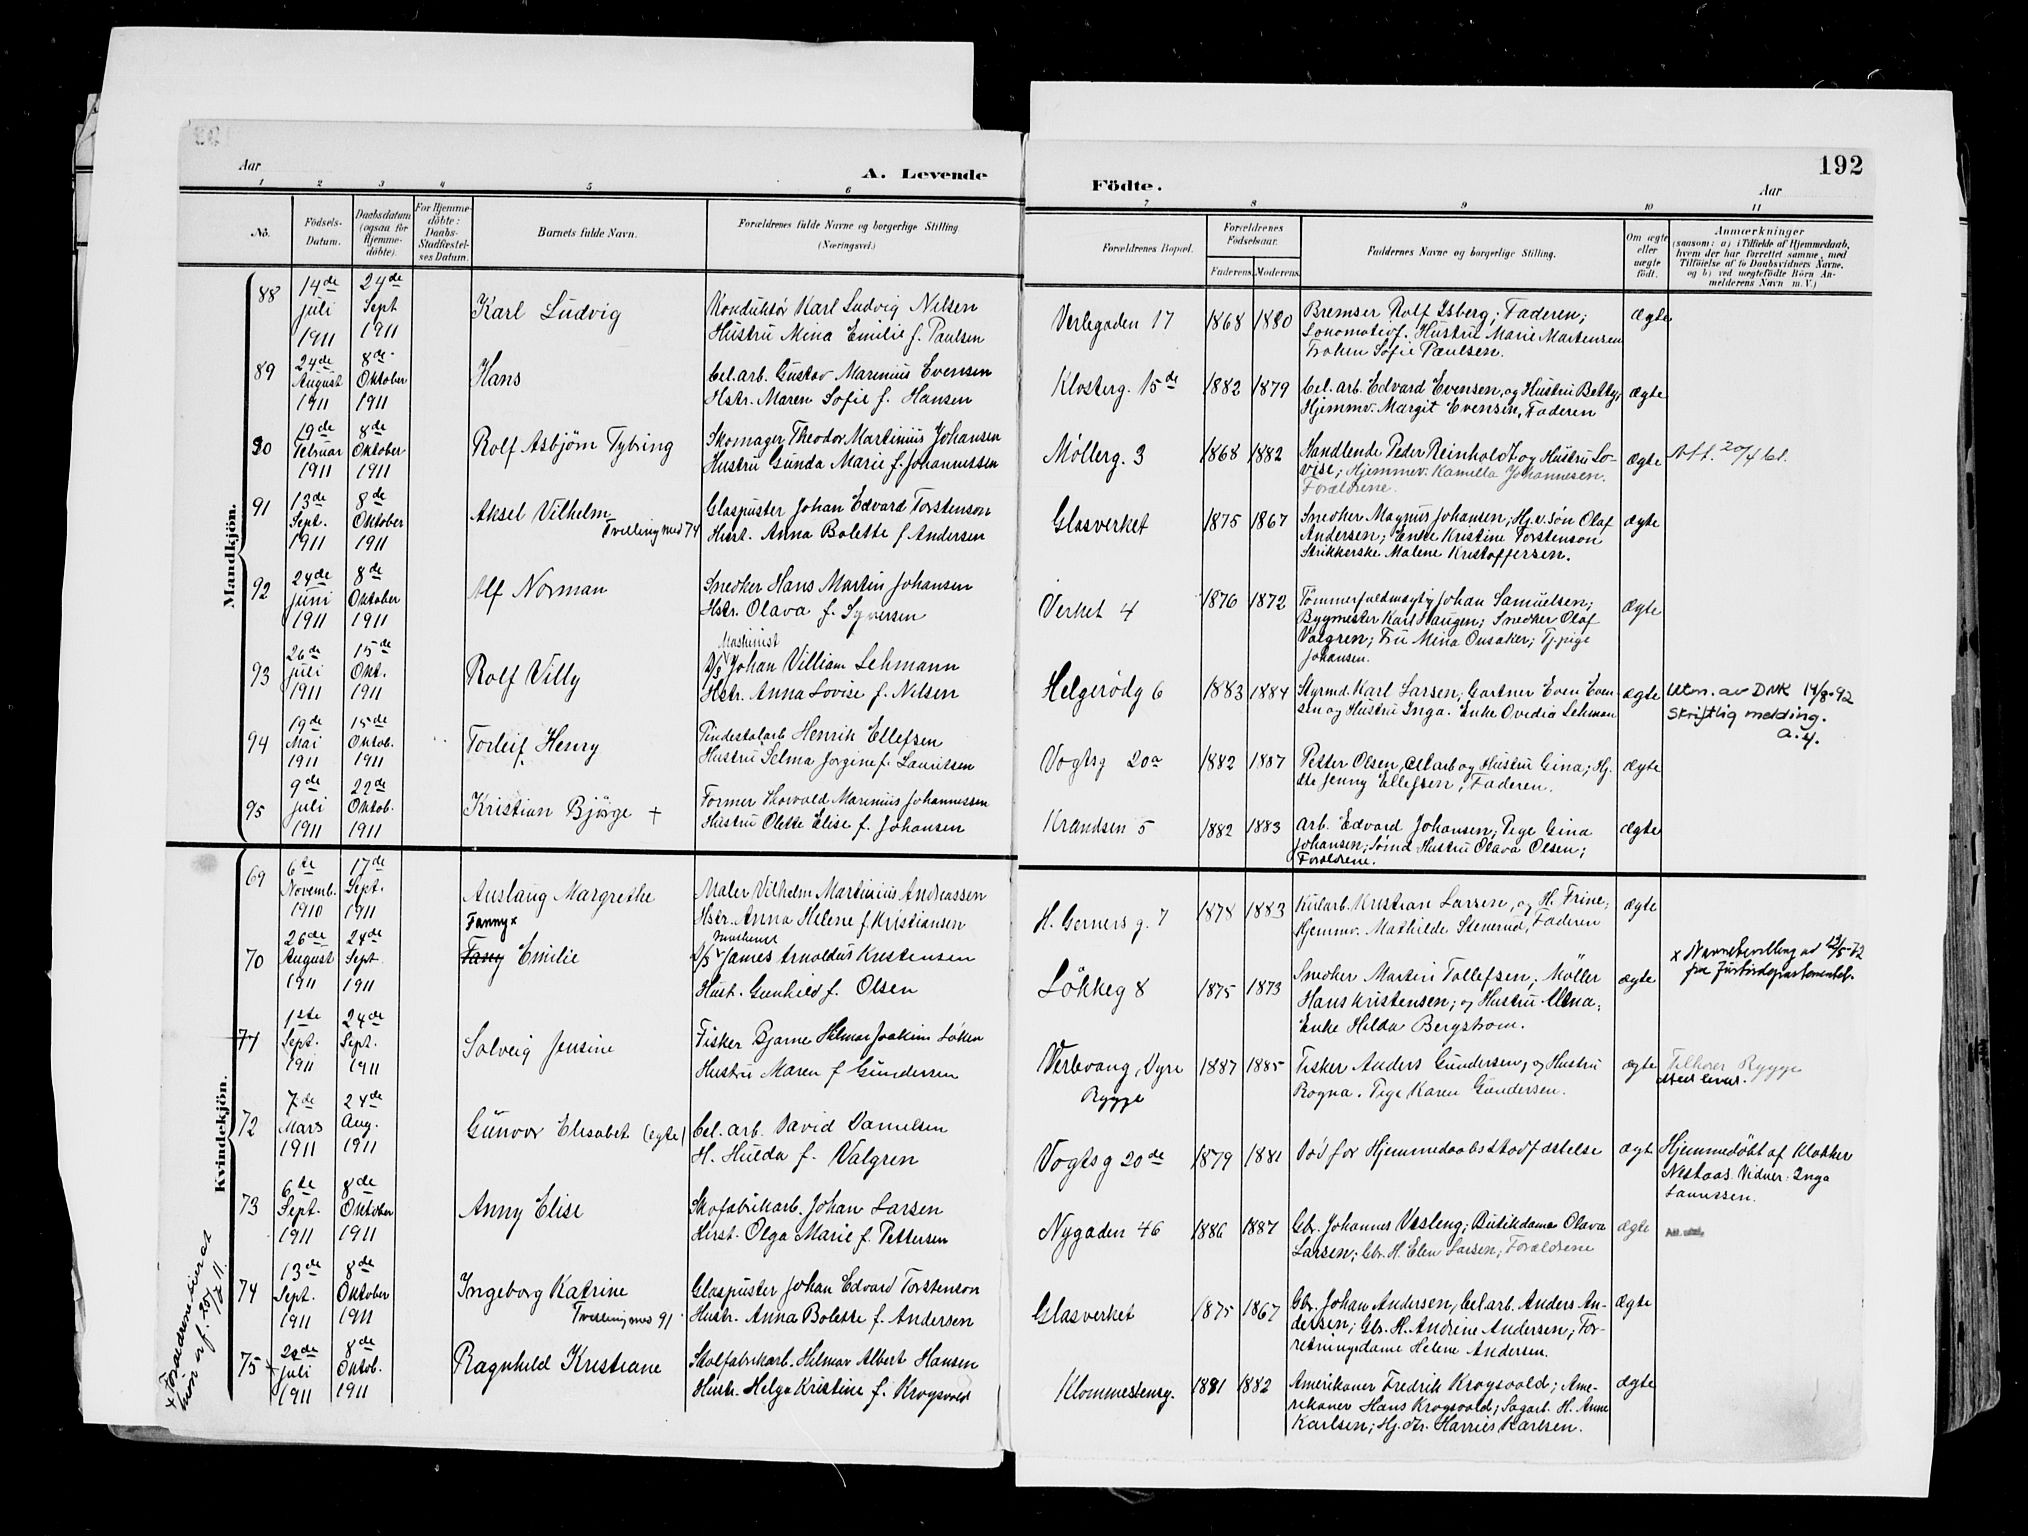 192
Aar
A. Levende
Födte.
Aar
1 2 3 4 5 6 7 8 9 10 11
No.
Födsels-
Datum.
Daabsdatum
(ogsaa för
Hjemme-
döbte).
For Hjemme-
döbte:
Daabs-
Stadfæstel-
ses Datum.
Barnets fulde Navn.
Forældrenes fulde Navne og borgerlige Stilling
(Næringsvei.)
Forældrenes Bopæl.
Forældrenes
Födselsaar.
Faderens. Moderens.
Faddernes Navne og borgerlige Stilling.
Om ægte
eller
uægte
födt.
Anmærkninger
(saasom: a) i Tilfælde af Hjemmedaab,
hvem der har forrettet samme, med
Tilföielse af to Daabsvidners Navne,
og b) ved uægtefödte Börn An-
melderens Navn m. V.)
Mandkjön.
88
14de
juli
1911
24de
Sept
1911
Karl Ludvig
Konduktör Karl Ludvig Nilsen
Hustru Mina Emilie f. Paulsen
Verlegaden 17
1868 1880
Bremser Rolf Isberg; Faderen;
Lokomotivf. Hustru Marie Martensen
Frøken Sofie Paulsen.
Ægte
89
24de
August
1911
8de
Oktober
1911
Hans
Cel. arb. Gustav Marenius Evensen
Hstr. Maren Sofie f. Hansen
Klosterg. 15de
1882 1879
Cel. arb. Edvard Evensen, og Hustru Betty;
Hjemmv. Margit Evensen, Faderen
Ægte
90
19de
Februar
1911
8de
Oktober
1911
Rolf Asbjørn Tybring
Skomager Theodor Martinius Johansen
Hustru Gunda Marie f. Johannessen
Møllerg. 3
1868 1882
Handlende Peder Reinholdt og Hustru Lo-
vise; Hjemmev. Kamilla Johannesen.
Forældrene.
Ægte
Att. 20/4 61.
91
13de
Sept.
1911
8de
Oktober
1911
Aksel Vilhelm
Tvilling med 74
Glaspuster Johan Edvard Torstenson
Hust. Anna Bolette f Andersen
Glasverket
1875 1867
Snedker Magnus Johansen; Hj.v. Søn Olaf
Andersen; Enke Kristine Torstenson
Strikkerske Malene Kristoffersen.
Ægte
92
24de
juni
1911
8de
Oktober
1911
Alf Norman
Snedker Hans Martin Johansen
Hstr. Olava f. Syversen
Verket 4
1876 1872
Tømmerfuldmægtig Johan Samuelsen;
Bygmester Karl Haugen; Snedker Olaf
Valgren; Fru Mina Onsaker; Tj.pige
Johansen.
Ægte
93
26de
juli
1911
15de
Okt.
1911
Rolf Villy
Maskinist
D/S Johan Villiam Lehmann
Hstr. Anna Lovise f. Nilsen
Helgerødg 6
1883 1884
Styrmd. Karl Larsen; Gartner Even Even-
sen og Hustru Inga. Enke Ovedia Lehman
Ægte
Utm. av DNK 14/8-92
Skriftlig melding.
94
19de
Mai
1911
15de
Oktob.
1911
Torleif Henry
Pindestolarb Henrik Ellefsen
Hustru Selma Jorgine f. Lauritsen
Vogtsg 20a
1882 1887
Petter Olsen, Cel arb og Hustru Gina; Hj.
dtr Jenny Ellefsen; Faderen.
Ægte
95
9de
juli
1911
22de
Oktob.
1911
Kristian Bjørge +
Former Thorvald Marenius Johannessen
Hustru Olette Elise f. Johansen
Krandsen 5
1882 1883
Arb. Edvard Johansen; Pige Gina
Johansen; Sømd Hustru Olava Olsen;
Forældrene.
Ægte
Kvindekjön.
69
6te
Novemb.
1910
17de
Sept.
1911
Auslaug Margrethe
Maler Vilhelm Martinius Andreassen
Hstr. Anna Helene f. Kristiansen
H. Gerners g. 7
1878 1883
Kularb. Kristian Larsen, og H. Trine;
Hjemmv. Mathilde Stenerud, Faderen
Ægte
70
26de
August
1911
24de
Sept
1911
Fanny x
Fany Emilie
D/S James Arnoldus Kristensen
Hust. Gunhild f. Olsen
Løkkeg 8
1875 1873
Snedker Martin Tollefsen; Møller
Hans Kristensen; og Hustru Elena;
Enke Hilda Bergstrøm.
Ægte
x Navnebevilling ad 19/5-72
fra Justisdepartementet.
71
1ste
Sept.
1911
24de
Sept.
1911
Solveig Jensine
Fisker Bjarne Hilmar Joakim Løken
Hustru Maren f Gundersen
Værbovang, Dyre
Rygge
1887 1885
Fisker Anders Gundersen, og Hustru
Ragna. Pige Karen Gundersen.
Ægte
Tilhører Rygge
72
7de
Mars
1911
24de
Aug.
1911
Gunvor Elisabet (ægte)
Cel. arb. David Danielsen
H. Hulda f. Valgren
Vogtsg 20de
1879 1881
Død før Hjemmedaabsstadfæstelse
Ægt
Hjemmedøbt af Klokker
Nestaas. Vidner: Inga
Laurissen.
73
6te
Sept.
1911
8de
Oktober
1911
Anny Elise
Skofabrikarb. Johan Larsen
Hust. Olga Marie f. Pettersen
Nygaden 46
1886 1887
Gbr. Johannes Vasleng; Butikdame Olava
Larsen; Gbr. H. Elen Larsen; Forældrene
Ægte
74
13de
Sept.
1911
8de
Oktober
1911
Ingeborg Katrine
Tvilling med 91
Glaspuster Johan Edvard Torstenson
Hustr. Anna Bolette f. Andersen
Glasverket
1875 1867
Gbr. Johan Andersen, Cel arb. Anders An-
dersen; Gbr. H. Andrine Andersen; For-
retningsdame Helene Andersen.
Ægte
75 x
20de
juli
1911
8de
Oktob.
1911
Ragnhild Kristiane
Stolfabrikarb. Hilmar Albert Hansen
Hustr. Helga Kristine f. Krogsvold
Klommestensg.
1881 1882
Amerikaner Fredrik Krogsvold; Ame-
rikaner Hans Krogsvold; Sagarb. H. Anne
Karlsen; Hj. dtr. Harriet Karlsen.
Ægte
x Forældrene siier at
hun er f. 20/7 11.